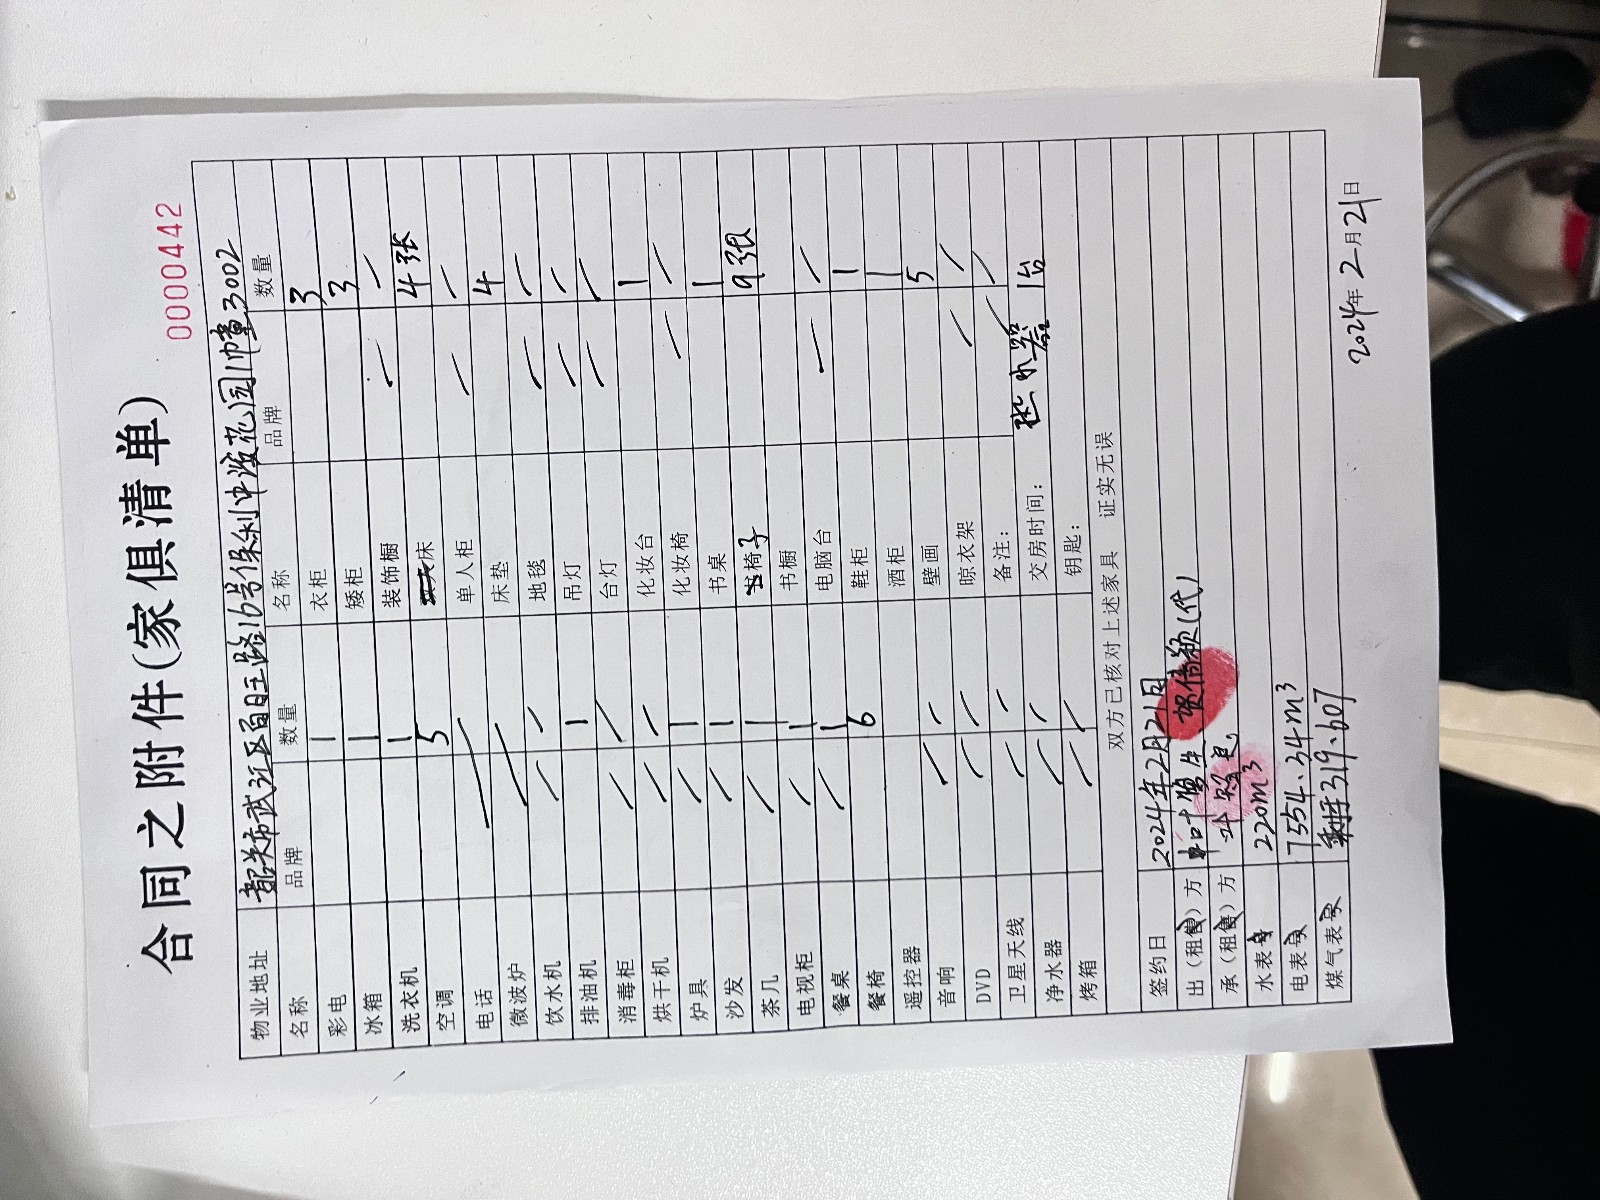 0000442
合同之附件(家俱清单)
物业地址 韶关市武江区百旺路16号保利中海花园1幢3002
名称 品牌 数量 名称 品牌 数量
彩电 1 衣柜 3
冰箱 1 矮柜 3
洗衣机 1 装饰橱 / /
空调 5 床 4张
电话 / 单人柜 / /
微波炉 / 床垫 4
饮水机 / / 地毯 / /
排油机 1 吊灯 / /
消毒柜 / / 台灯 / /
烘干机 / / 化妆台 1
炉具 / 1 化妆椅 / /
沙发 / 1 书桌 1
茶几 / 1 椅子 9张
电视柜 / 1 书橱
餐桌 / 1 电脑台 / /
餐椅 6 鞋柜 1
遥控器 酒柜 1
音响 / / 壁画 5
DVD / / 晾衣架 / /
卫星天线 / / 备注: / /
净水器 / / 交房时间: 热水器 1台
烤箱 / / 钥匙:
双方已核对上述家具 证实无误
签约日 2024年2月21日
出(租)方 (代)
承(租)方
水表 220m3
电表 7554.34m3
煤气表 剩余319.607
2024年2月21日